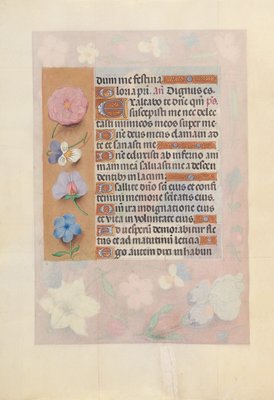 dum me festina.
Gloria pri. An̄ Dignus es
Exaltabo te dn̄e qm̄ ps̄
suscepisti me nec delec
tasti inimicos meos super me
Dn̄e deus meus clamaui ad
te et sanasti me
Dn̄e eduxisti ab inferno am
mam mea saluasti me a descen
dentibus in lacum
Psallite dn̄o sc̄i eius et confi
temini memorie sc̄itatis eius
Qm̄ ira indignatione eius
et vita in voluntate eius
Ad vesperū demorabitur fle
tus et ad matutinū leticia
Ego autem dixi in habun